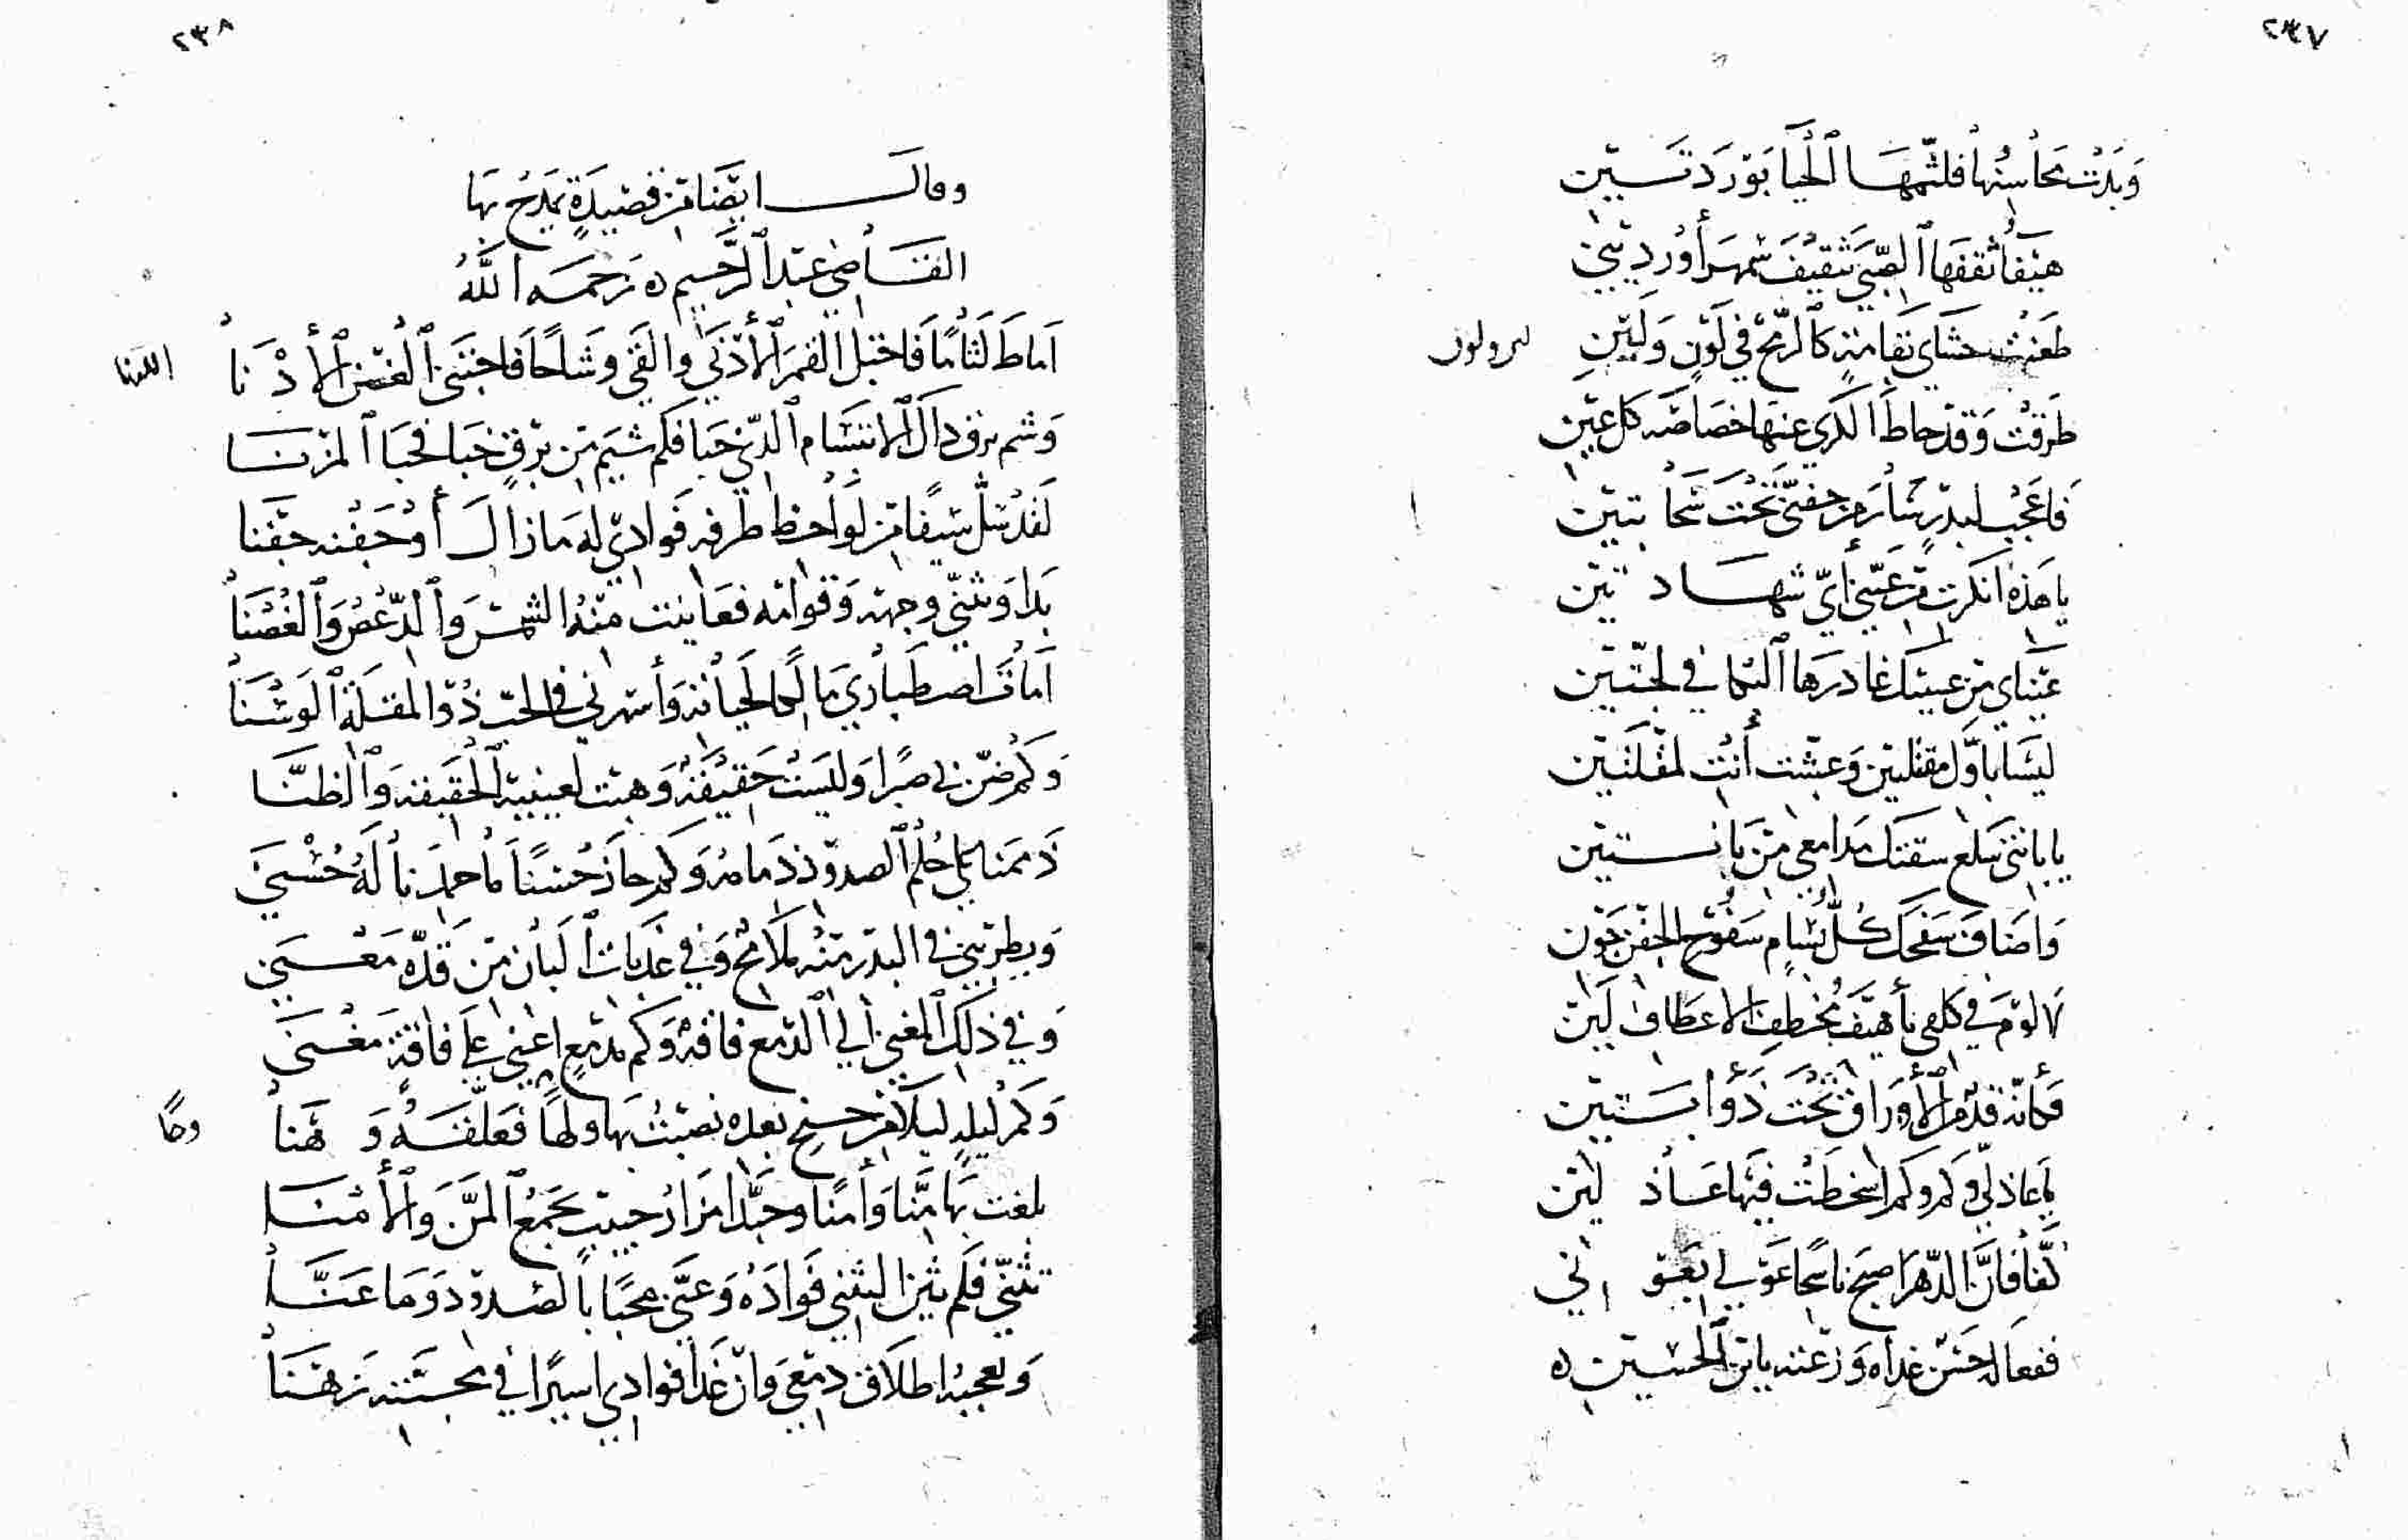 ٢٣٧
وَبَدَتْ محَاسِنُهَا فلثّمهَا الحَيا بَوَردَتَــين
هيَفاُ ثقفهَا الصِّبَى تثقِيفَ سَمهَرَ أوْرديْني
طعَنتْ حشَاي بقامةٍ كالرّمح في لَوْنٍ وَلينِ
طرَقتْ وَقد حاط الكرَي عنهَا خصَاصَه كل عَين
فَاعَجبْ لبدرٍ سَارَ من جفنىَّ تحْتَ سَحَابتين
يا هَذه أنكرت من عَيْني أيّ شهَــادتين
عَينَاي مِن عينيك غادرَهَا البُكا في لجتَّين
ليسَا بأوَّل مقتلين وَعشت أنت لمُقلَتَين
يا بانتىَ سَلع سقتك مَدامعي مِن بانــتين
وَاضَاف سَفحك كلُّ سَفوح الجفن جَون
لا لوْمَ في كلفي بأهيَفَ مُخطفِ الاعطاف لَين
فكأنّه قدّ من الأوْرَاق تحْتَ ذَؤابــتين
يا عَاذلي وَكم وكم اسْخطت فيهَا عَــاذلين
كُفّا فانَّ الدّهرَ اصبَح ناسخًا عَوْني بعَــو ني
ففعَاله حَسَن غداه وَزعته بابن الحسَــين ه
٢٣٨
وقالــــ ايضًا مِن قصِيدَةٍ يمَدحُ بهَا
القــاضي عَبد الرَّحيم ه رَحمَــه اللَّهُ
أماطَ لثَامًا فَاختبل القمَرَ الأدْنَي والقَى وِشَاحًا فَاجتنَى الغصن الأدْنَا
وَشم برق ذاك الابتسَام الذي خبَا فكم شيَم مِن برقٍ خبَا فحبَا المزنَــا
لَقد سَلَّ سَيفًا مِن لَوَاحظ طرفِه فَوادي له مَازال أوْ حَفنه جَفنا
بَدَا وَثنَّي وجهَه وَقوامَه فعَاينت منهُ الشمسَ وَالدّعْصَ وَالغُصْنَا
أماتَ اصطبَاري مَا لَمَا لحيَاته وَأسهرني في الحبّ ذُو المقلَة الوَسْنَا
وَكم ضرّني صبرًا وَليسَت حقيقةً وَهبت لعينيه الحَقيقة وَالظنّــا
ذَممنا علي حُلْم الصدود ذمَامهُ وَكم حازَ حُسْنًا مَا حمدنا لَهُ حُسْنَى
وَيطربني في البَدر منه مَلامح وَفي عَذبَات البَان مِن قدّه مَعْــنَى
وَفي ذلك المغنى الي الدَمع فاقةً وَكم مَدمَعٍ اغني علي فاقةٍ مَغْــنَى
وَكم ليلةٍ ليلاَء مِن جنح بعده نصَبتُ بهَا ولهًا فَعلّقَــهُ وَ هَنَا
بلغت بهَا منَّا وَأمنًا وحبَّذا مَزارُ حبيبٍ يجمَعُ المنَّ وَالأمنَــا
تثنَّي فلَم يثن التثني فَوادَهُ وَعنَّى محبًا بالصّدود وَمَا عَنَّــا
وَيعجبهُ اطلاَق دَمعي وَان غَدا فوادي اسيرًا في محبــته رَهنَــا
اللدنا
وهنًا